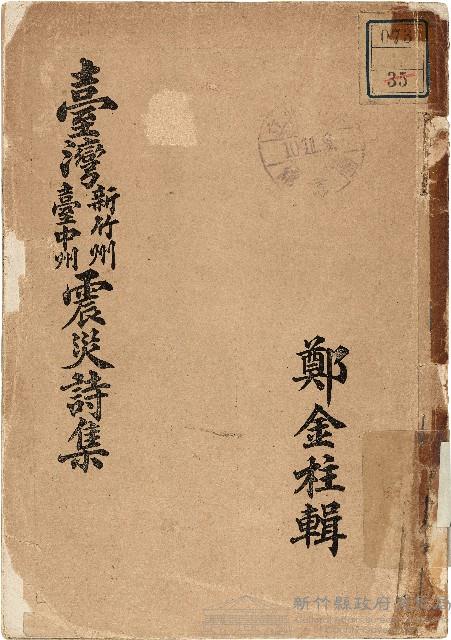 臺灣新竹州臺中州震災詩集
鄭金柱輯
073
35
10.11.9
新竹縣政府文化局